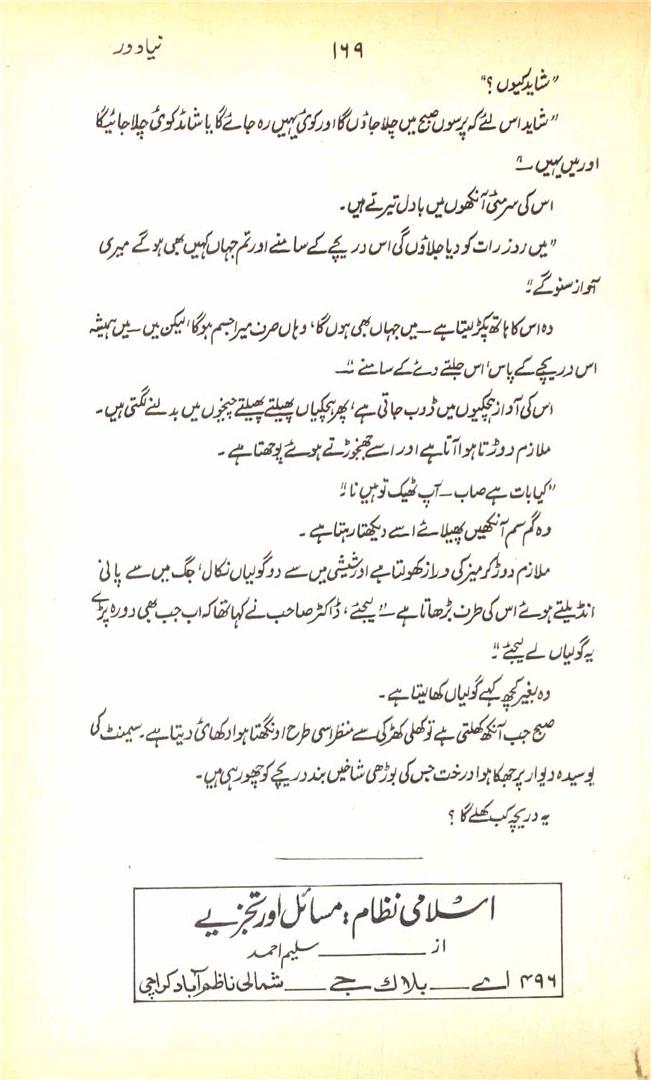 نیا دور ۱۶۹
”شاید کیوں؟“
”شاید اس لئے کہ پرسوں صبح میں چلا جاؤں گا اور کوئی یہیں رہ جائے گا یا شائد کوئی چلا جائیگا
اور میں یہیں —“
اس کی سرمئی آنکھوں میں بادل تیرتے ہیں۔
”میں روز رات کو دیا جلاؤں گی اس دریچے کے سامنے اور تم جہاں کہیں بھی ہو گے میری
آواز سنو گے۔“
وہ اس کا ہاتھ پکڑ لیتا ہے — میں جہاں بھی ہوں گا، وہاں صرف میرا جسم ہوگا، لیکن میں — میں ہمیشہ
اس دریچے کے پاس، اس جلتے دئے کے سامنے —“
اس کی آواز ہچکیوں میں ڈوب جاتی ہے، پھر ہچکیاں پھیلتے پھیلتے چیخوں میں بدلنے لگتی ہیں۔
ملازم دوڑتا ہوا آتا ہے اور اسے جھنجوڑتے ہوئے پوچھتا ہے۔
”کیا بات ہے صاب — آپ ٹھیک تو ہیں نا۔“
وہ گم سم آنکھیں پھیلائے اسے دیکھتا رہتا ہے۔
ملازم دوڑ کر میز کی دراز کھولتا ہے اور شیشی میں سے دو گولیاں نکال، جگ میں سے پانی
انڈیلتے ہوئے اس کی طرف بڑھاتا ہے — ”لیجئے، ڈاکٹر صاحب نے کہا تھا کہ اب جب بھی دورہ پڑے
یہ گولیاں لے لیجئے۔“
وہ بغیر کچھ کہے گولیاں کھا لیتا ہے۔
صبح جب آنکھ کھلتی ہے تو کھلی کھڑکی سے منظر اسی طرح اونگھتا ہوا دکھائی دیتا ہے۔ سیمنٹ کی
بوسیدہ دیوار پر جھکا ہوا درخت جس کی بوڑھی شاخیں بند دریچے کو چھو رہی ہیں۔
یہ دریچہ کب کھلے گا؟
اسلامی نظام: مسائل اور تجزیے
از ــــــ سلیم احمد
۴۹۶ اے ــــ بلاک جے ــــ شمالی ناظم آباد کراچی